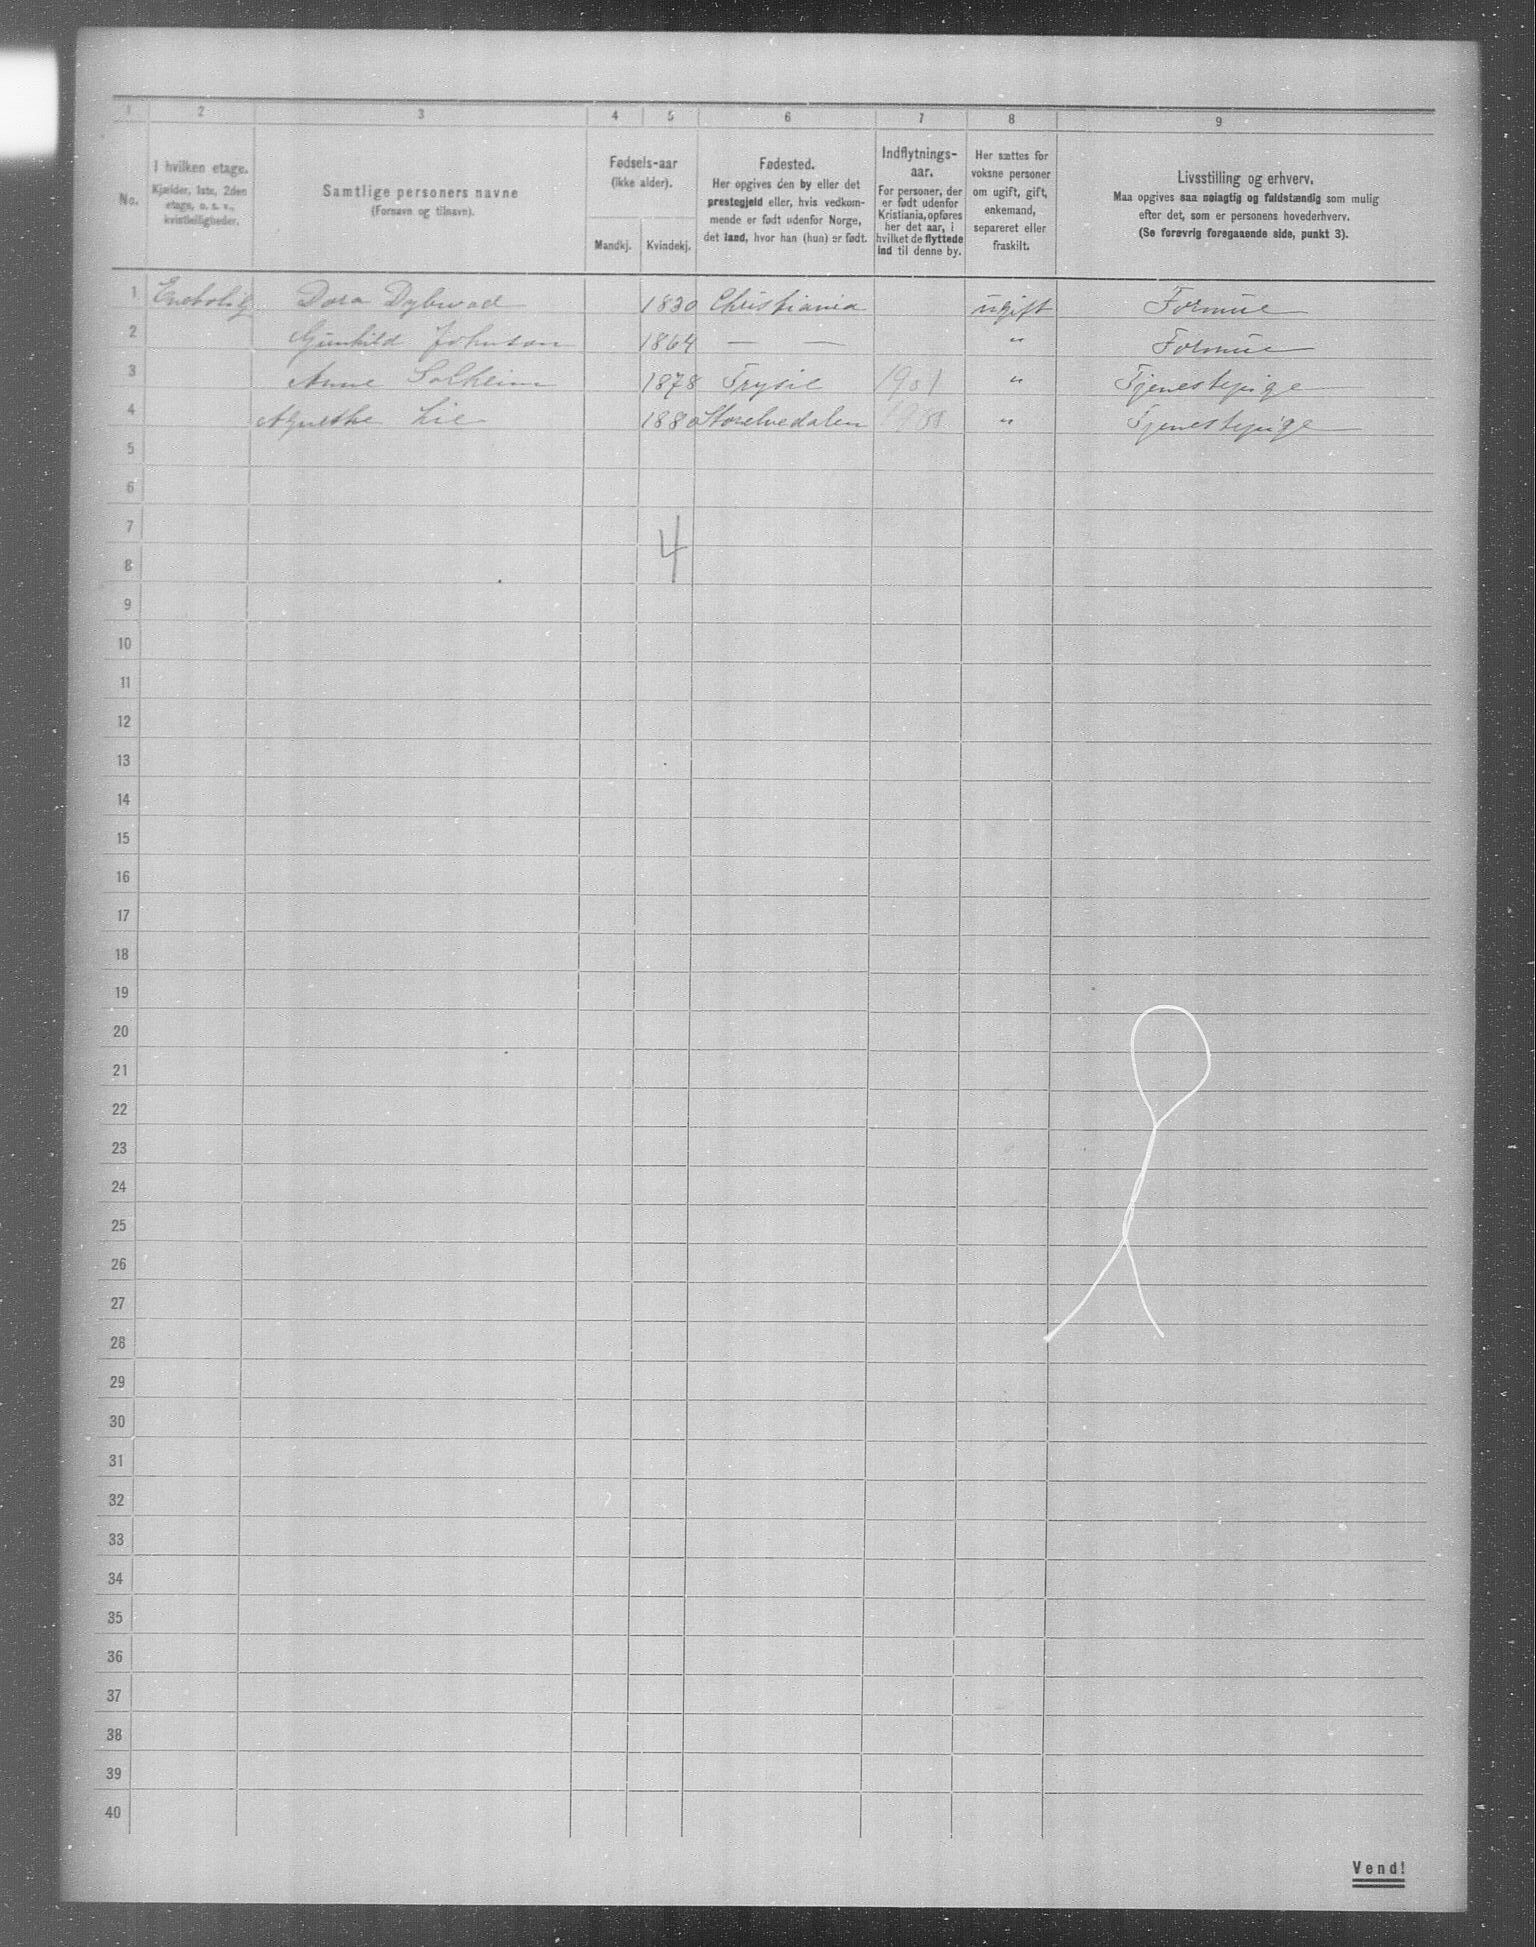 1 2 3 4 5 6 7 8 9
No.
I hvilken etage.
Kjælder, 1ste, 2den
etage, o. s. v.,
kvistleiligheder.
Samtlige personers navne
(Fornavn og tilnavn).
Fødsels-aar
(ikke alder).
Mandkj. Kvindekj.
Fødested.
Her opgives den by eller det
prestegjeld eller, hvis vedkom-
mende er født udenfor Norge,
det land, hvor han (hun) er født.
Indflytnings-
aar.
For personer, der
er født udenfor
Kristiania, opføres
her det aar, i
hvilket de flyttede
ind til denne by.
Her sættes for
voksne personer
om ugift, gift,
enkemand,
separeret eller
fraskilt.
Livsstilling og erhverv.
Maa opgives saa nøiagtig og fuldstændig som mulig
efter det, som er personens hovederhverv.
(Se forøvrig foregaaende side, punkt 3).
1 Enebolig Dora Dybwad 1830 Christiania ugift Formue
2 Gunhild Johnson 1864 — — " Formue
3 Anne Solheim 1878 Trysil 1901 " Tjenestepige
4 Agnethe Lie 1880 Storelvedalen " Tjenestepige
5
6
7
4
8
9
10
11
12
13
14
15
16
17
18
19
20
21
22
23
24
25
26
27
28
29
30
31
32
33
34
35
36
37
38
39
40
Vend!